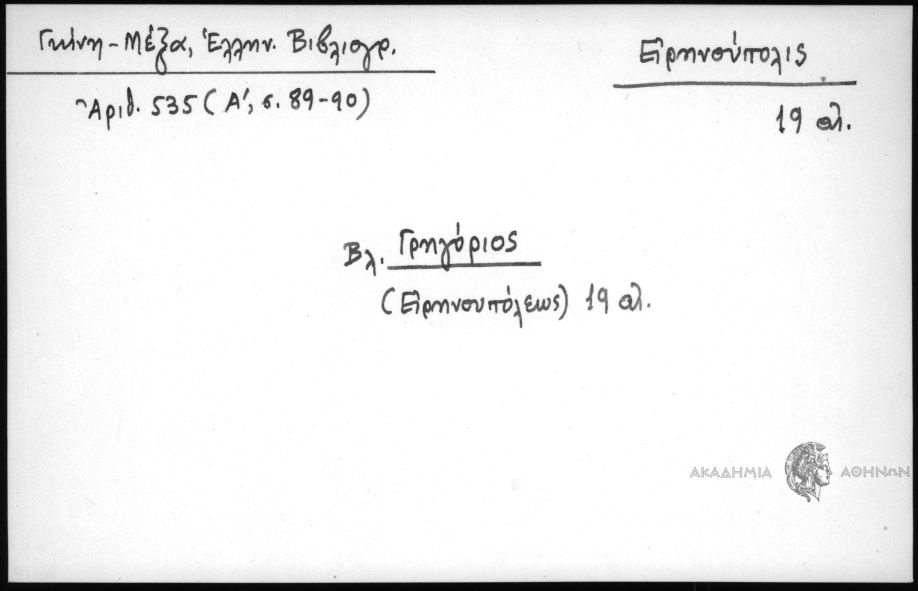 Γκίνη - Μέξα, Ἑλλην. Βιβλιογρ.
Εἰρηνούπολις
Ἀριθ. 535 (Α', σ. 89-90)
19 αἰ.
Βλ. Γρηγόριος
(Εἰρηνουπόλεως) 19 αἰ.
ΑΚΑΔΗΜΙΑ ΑΘΗΝΩΝ